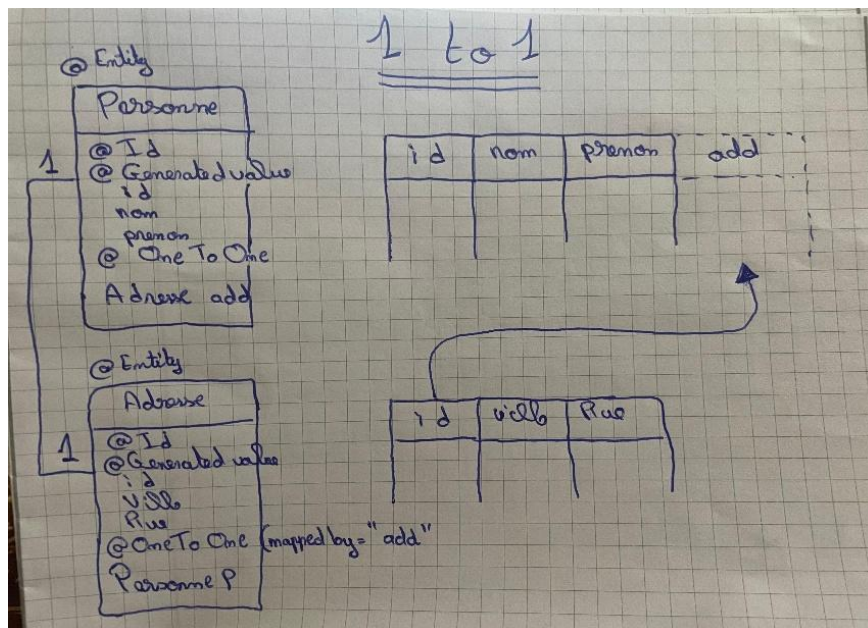 1 to 1
@ Entity
Personne
@ Id
@ Generated value
id
nom
prenom
@ One To One
Adresse add
1
@ Entity
Adresse
@ Id
@Generated value
id
ville
Rue
@OneTo One (mapped by="add"
Personne P
1
id nom prenom add
id ville Rue